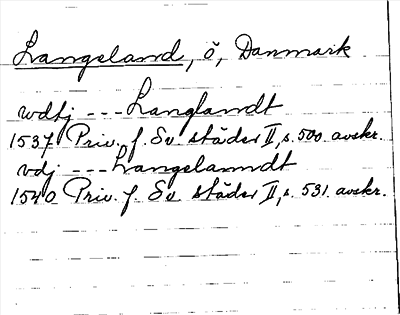 Langeland, ö, Danmark
wdtj --- Langlandt
1537 Priv. f. Sv. städer II, s. 500. avskr.
vdj --- Langelanndt
1540 Priv. f. Sv. städer II, s. 531. avskr.